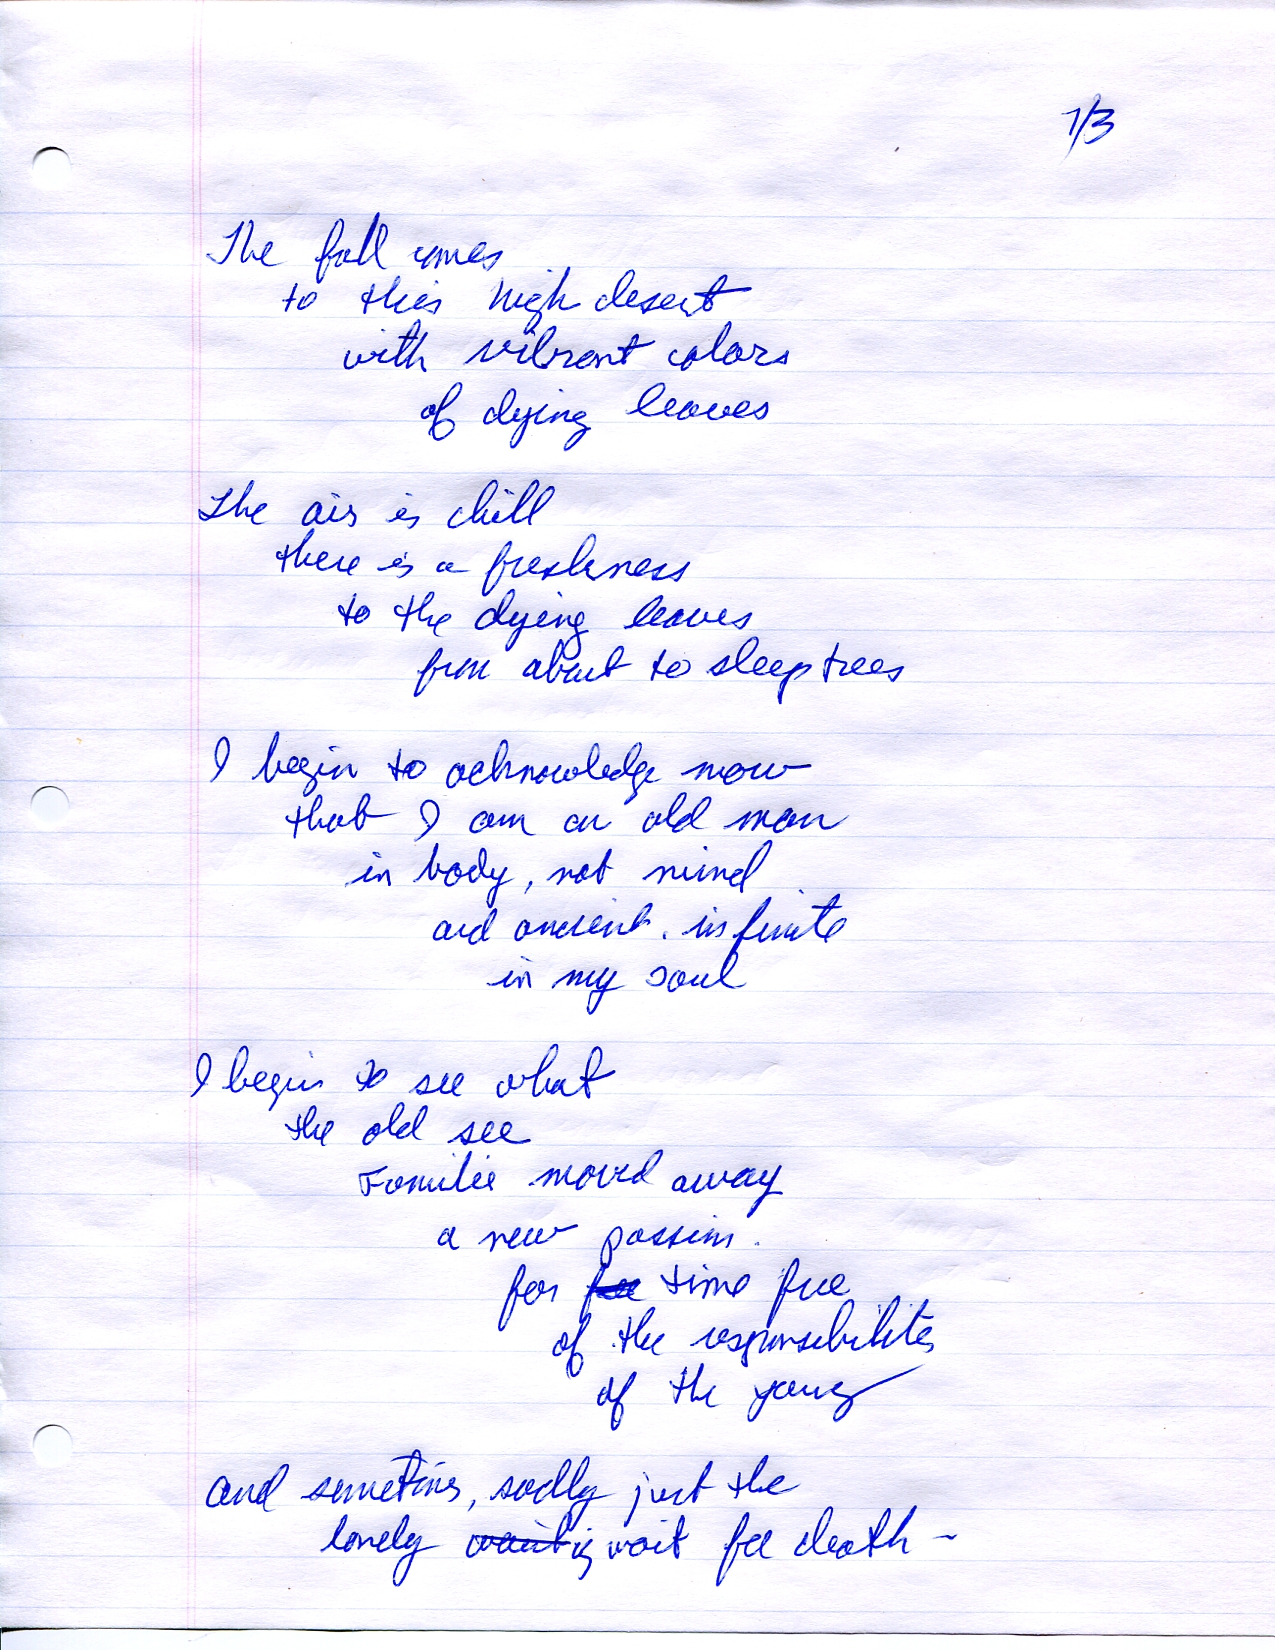 1/3
The fall comes
to this high desert
with vibrant colors
of dying leaves
The air is chill
there is a freshness
to the dying leaves
from about to sleep trees
I begin to acknowledge now
that I am an old man
in body, not mind
and ancient, infinite
in my soul
I begin to see what
the old see
Familie moved away
a new passion.
for free time free
of the responsibilites
of the young
and sometims, sadly just the
lonely waiting wait for death –